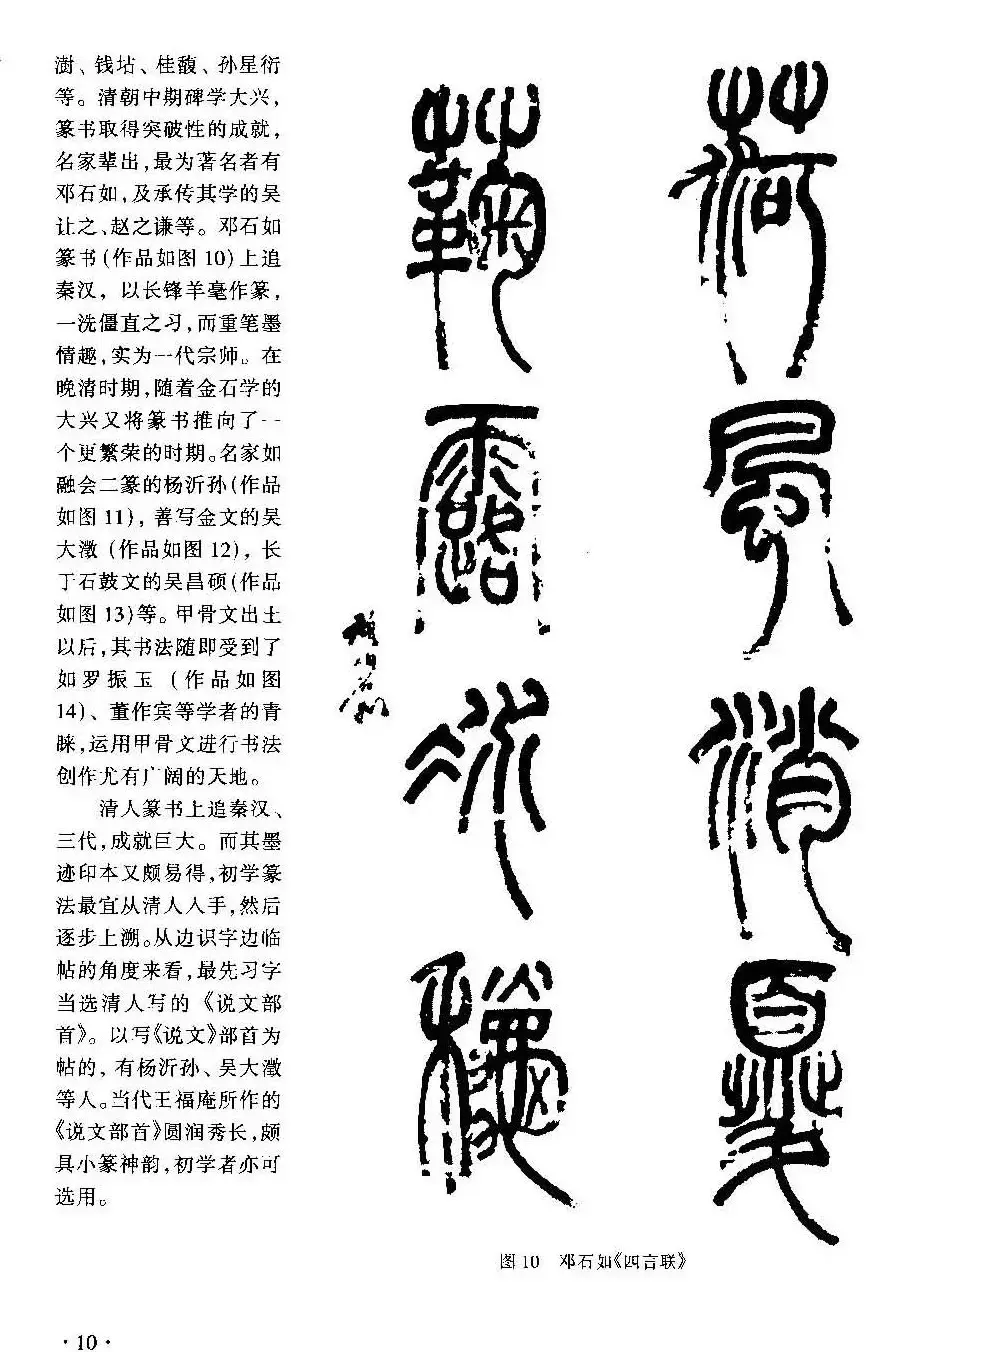 澍、钱坫、桂馥、孙星衍
等。清朝中期碑学大兴，
篆书取得突破性的成就，
名家辈出，最为著名者有
邓石如，及承传其学的吴
让之、赵之谦等。邓石如
篆书(作品如图10)上追
秦汉，以长锋羊毫作篆，
一洗僵直之习，而重笔墨
情趣，实为一代宗师。在
晚清时期，随着金石学的
大兴又将篆书推向了一
个更繁荣的时期。名家如
融会二篆的杨沂孙(作品
如图11)，善写金文的吴
大澂(作品如图12)，长
于石鼓文的吴昌硕(作品
如图13)等。甲骨文出土
以后，其书法随即受到了
如罗振玉(作品如图
14)、董作宾等学者的青
睐，运用甲骨文进行书法
创作尤有广阔的天地。
清人篆书上追秦汉、
三代，成就巨大。而其墨
迹印本又颇易得，初学篆
法最宜从清人入手，然后
逐步上溯。从边识字边临
帖的角度来看，最先习字
当选清人写的《说文部
首》。以写《说文》部首为
帖的，有杨沂孙、吴大澂
等人。当代王福庵所作的
《说文部首》圆润秀长，颇
具小篆神韵，初学者亦可
选用。
荷風消夏
菊露秌穠
頑伯石如
图10 邓石如《四言联》
·10·